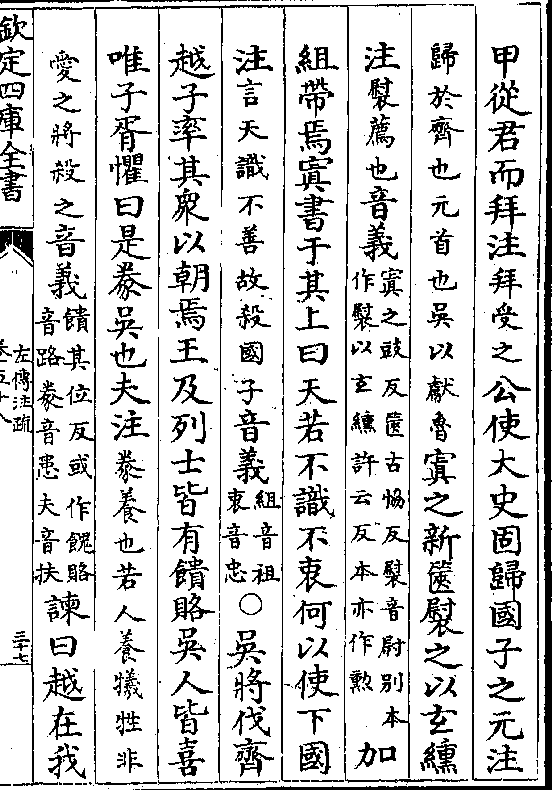 甲從君而拜注拜受之公使大史固歸國子之元注
歸於齊也元首也吳以獻魯寘之新篋褽之以玄纁
注褽薦也音義寘之豉反篋古愜反褽音尉别本作褽以玄纁許云反本亦作勲加
組帶焉寘書于其上曰天若不識不衷何以使下國
注言天識不善故殺國子音義組音祖衷音忠○吳將伐齊
越子率其衆以朝焉王及列士皆有饋賂吳人皆喜
唯子胥懼曰是豢吳也夫注豢養也若人養犧牲非
愛之將殺之音義饋其位反或作餽賂音路豢音患夫音扶諫曰越在我
欽定四庫全書
左傳注疏
卷五十八
三十七